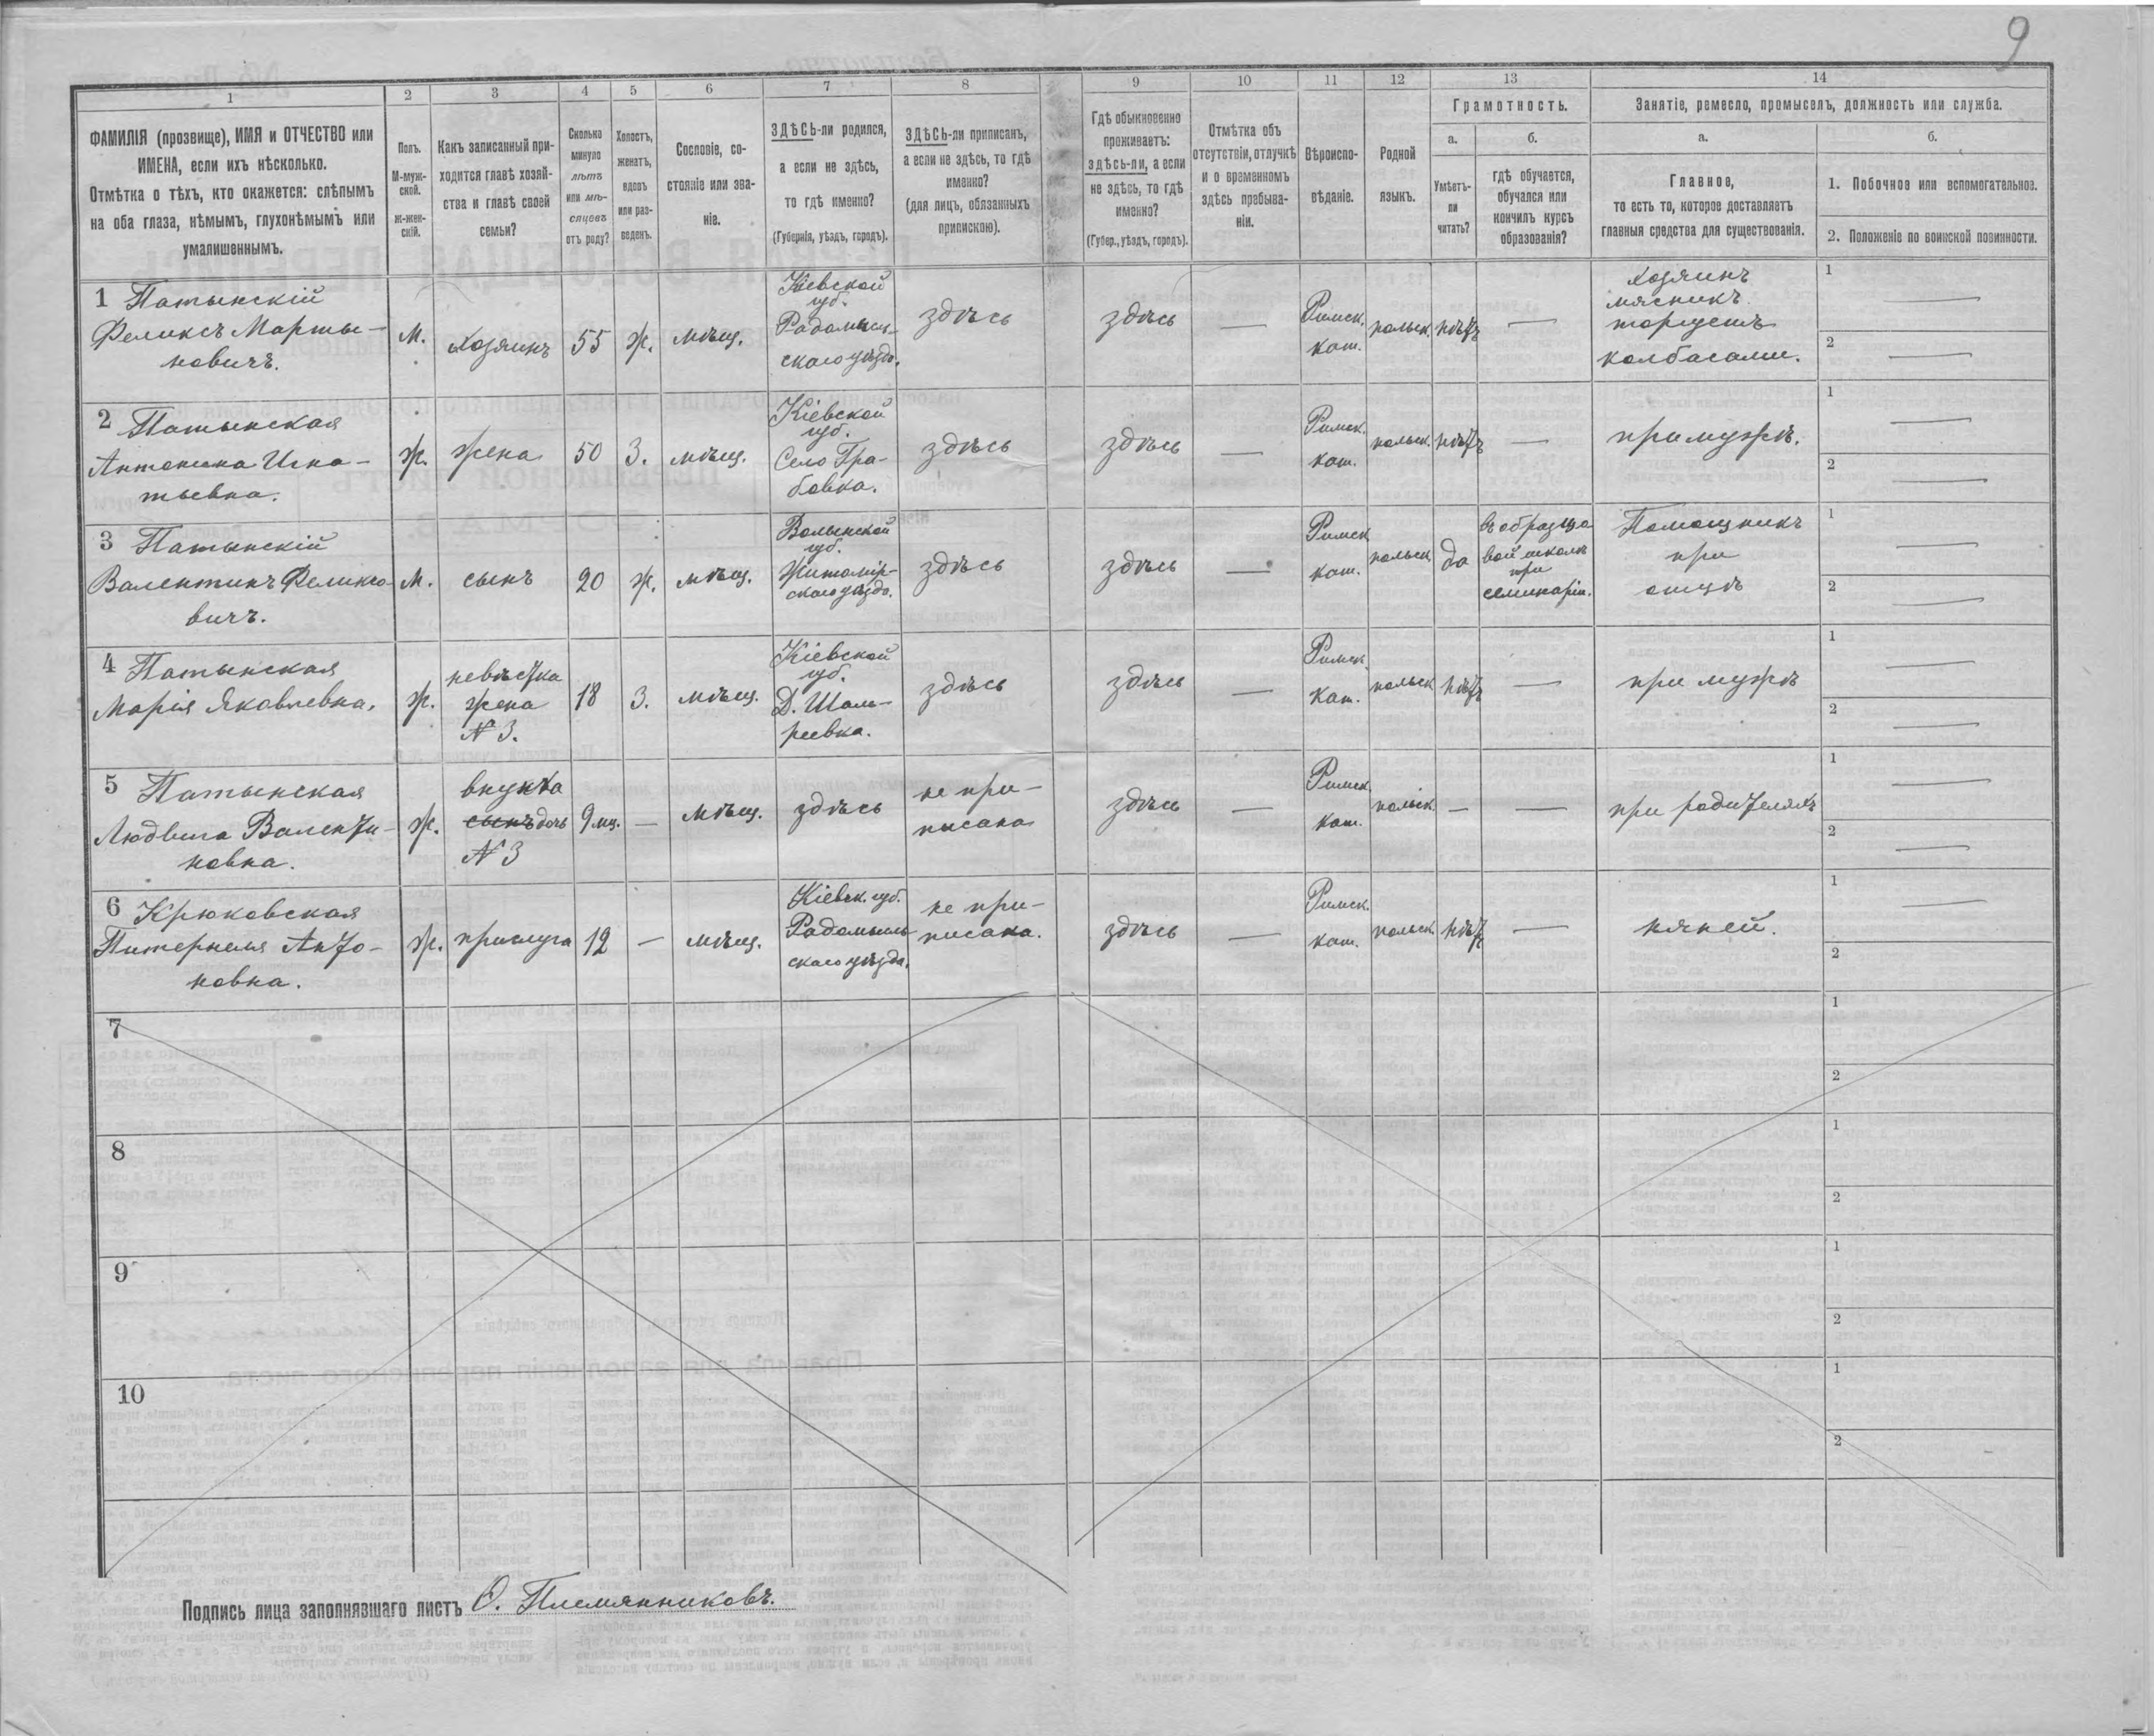 9
1 2 3 4 5 6 7 8 9 10 11 12 13 14
ФАМИЛІЯ (прозвище), ИМЯ и ОТЧЕСТВО или
ИМЕНА, если ихъ нѣсколько.
Отмѣтка о тѣхъ, кто окажется: слѣпымъ
на оба глаза, нѣмымъ, глухонѣмымъ или
умалишеннымъ.
Полъ.
М-муж-
ской.
Ж-жен-
скій.
Какъ записанный при-
ходится главѣ хозяй-
ства и главѣ своей
семьи?
Сколько
минуло
лѣтъ
или мѣ-
сяцевъ
отъ роду?
Холостъ,
женатъ,
вдовъ
или раз-
веденъ.
Сословіе, со-
стояніе или зва-
ніе.
ЗДѢСЬ-ли родился,
а если не здѣсь,
то гдѣ именно?
(Губернія, уѣздъ, городъ).
ЗДѢСЬ-ли приписанъ,
а если не здѣсь, то гдѣ
именно?
(для лицъ, обязанныхъ
припискою).
Гдѣ обыкновенно
проживаетъ:
здѣсь-ли, а если
не здѣсь, то гдѣ
именно?
(Губер., уѣздъ, городъ).
Отмѣтка объ
отсутствіи, отлучкѣ
и о временномъ
здѣсь пребыва-
ніи.
Вѣроиспо-
вѣданіе.
Родной
языкъ.
Грамотность.
а.
Умѣетъ-
ли
читать?
б.
гдѣ обучается,
обучался или
кончилъ курсъ
образованія?
Занятіе, ремесло, промыселъ, должность или служба.
а.
Главное,
то есть то, которое доставляетъ
главныя средства для существованія.
б.
1. Побочное или вспомогательное.
2. Положеніе по воинской повинности.
1 Патынскій
Феликсъ Марты-
новичъ.
М.
хозяинъ
55
ж.
мѣщ.
Кіевской
губ.
Радомысль-
скаго уѣзда.
здѣсь
здѣсь
—
Римск.
кат.
польск.
нѣтъ
—
Хозяинъ
мясникъ
торгуетъ
колбасами.
1 —
2 —
2 Патынская
Антонина Игна-
тьевна.
Ж.
жена
50
З.
мѣщ.
Кіевской
губ.
Село Гра-
бовка.
здѣсь
здѣсь
—
Римск.
кат.
польск.
нѣтъ
—
при мужѣ.
1 —
2 —
3 Патынскій
Валентинъ Феликсо-
вичъ.
М.
сынъ
20
ж.
мѣщ.
Волынской
губ.
Житомір-
скаго уѣзда.
здѣсь
здѣсь
—
Римск
кат.
польск
да
въ образцо
вой школѣ
при
семинаріи.
Помощникъ
при
отцѣ
1 —
2 —
4 Патынская
Марія Яковлевна.
ж.
невѣстка
жена
№ 3.
18
З.
мѣщ.
Кіевской
губ.
Д.
здѣсь
здѣсь
—
Римск.
кат.
польск
нѣтъ
—
при мужѣ
1 —
2 —
5 Патынская
Людвига Валенти-
новна.
ж.
внучка
сынъ дочь
№ 3
9 мц.
—
мѣщ.
здѣсь
не при-
писана
здѣсь
—
Римск.
кат.
польск.
—
—
при родителяхъ
1 —
2 —
6 Крюковская
Антo-
новна.
ж.
прислуга
12
—
мѣщ.
Кіевск. губ.
Радомысль-
скаго уѣзда.
не при-
писана.
здѣсь
—
Римск.
кат.
польск.
нѣтъ
—
няней.
1 —
2 —
7
1
2
8
1
2
9
1
2
10
1
2
Подпись лица заполнявшаго листъ О. Племянниковъ.